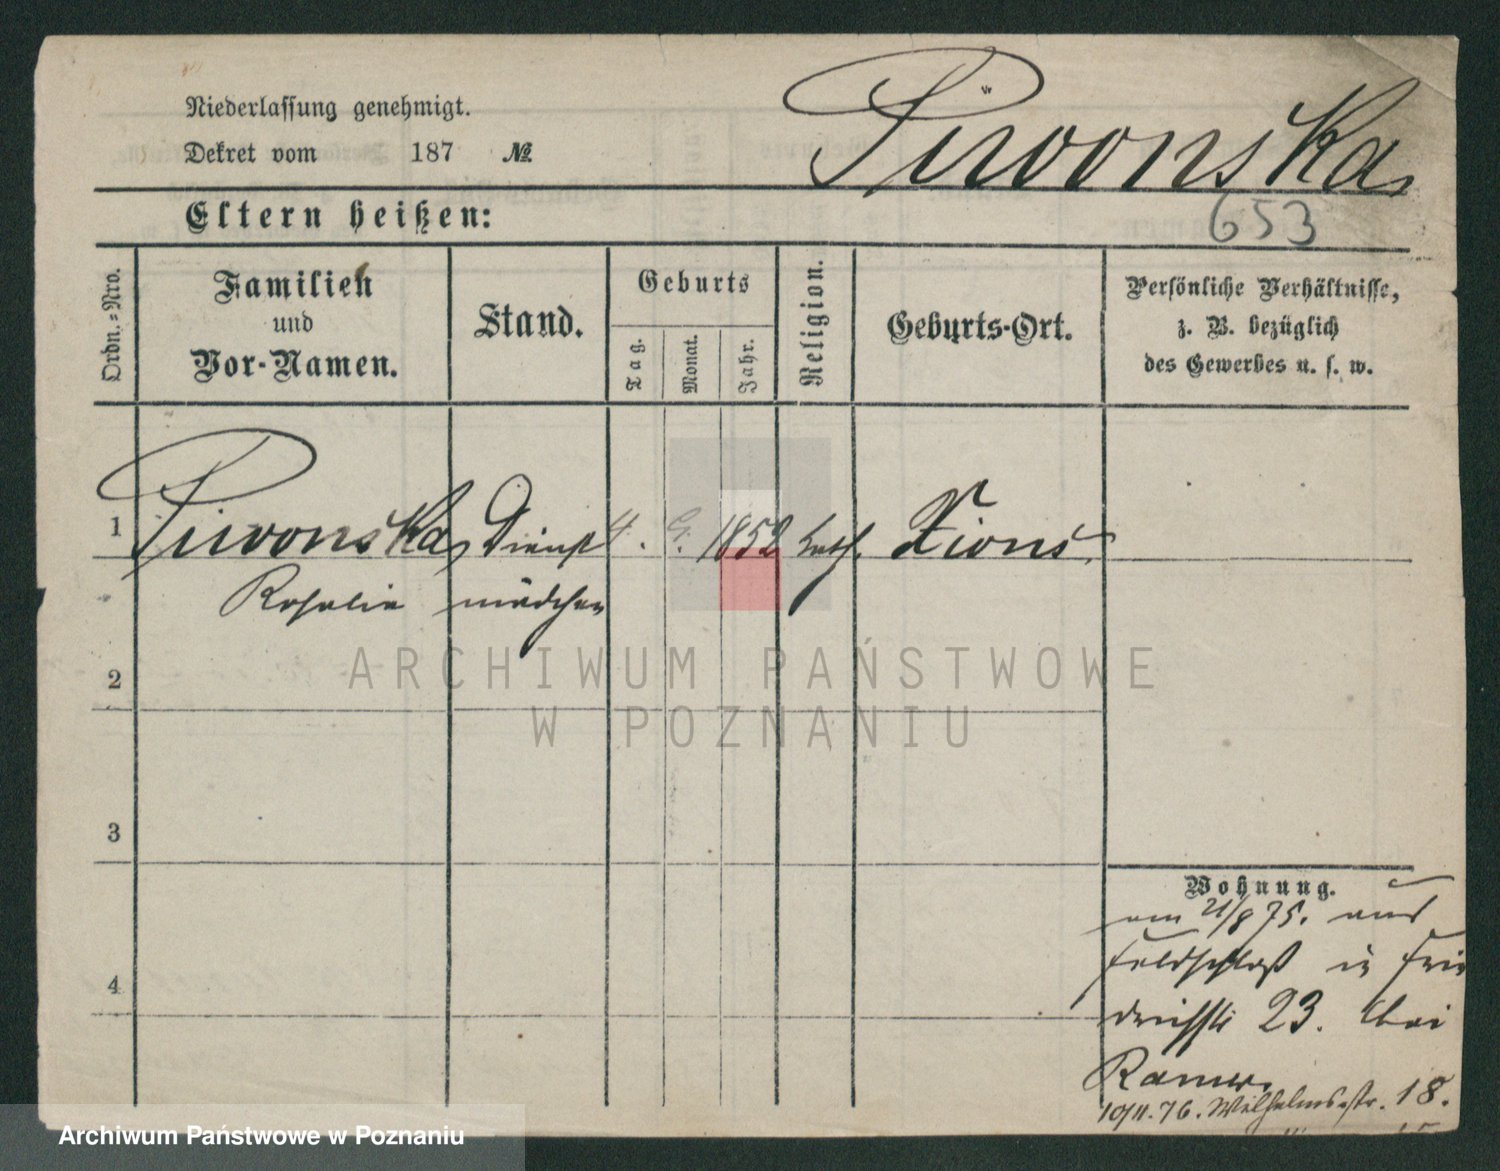 Niederlassung genehmigt.
Dekret vom 187 №
Piwonska
653
Eltern heißen:
Ordn.=Nro.
Familien
und
Vor-Namen.
Stand.
Geburts
Tag.
Monat.
Jahr.
Religion.
Geburts-Ort.
Persönliche Verhältnisse,
z. B. bezüglich
des Gewerbes u. s. w.
1 Piwonska Dienst 4. 9. 1852 kath. Xions
Rosalie mädchen
2
3
4
Wohnung.
am 21/8 75. aus
Feldschloß in Frie
drichstr 23. bei
10/11. 76. Wilhelmsstr. 18.
ARCHIWUM PAŃSTWOWE
W POZNANIU
Archiwum Państwowe w Poznaniu